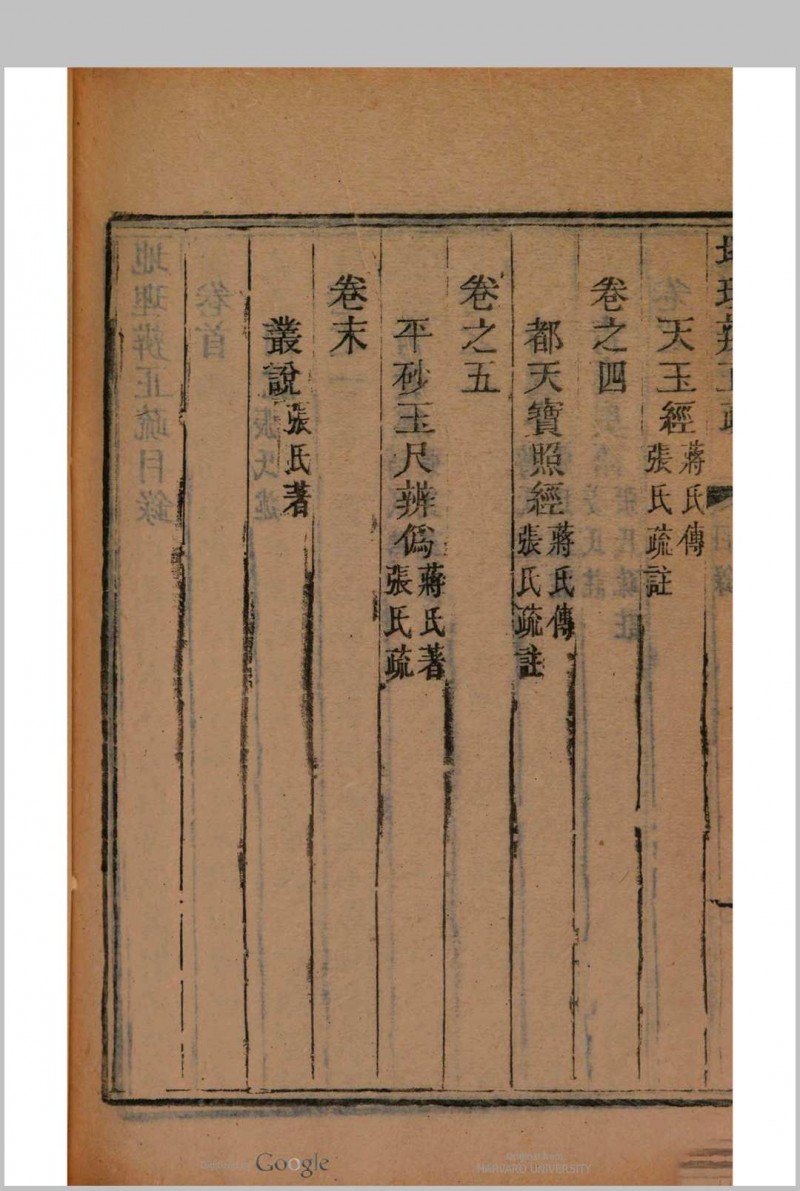 天玉經蔣氏傳張氏疏註
卷之四
都天寶照經蔣氏傳張氏疏註
卷之五
平砂玉尺辨僞蔣氏著張氏疏
卷末
叢說張氏著
Digitized by Google
Original from
HARVARD UNIVERSITY